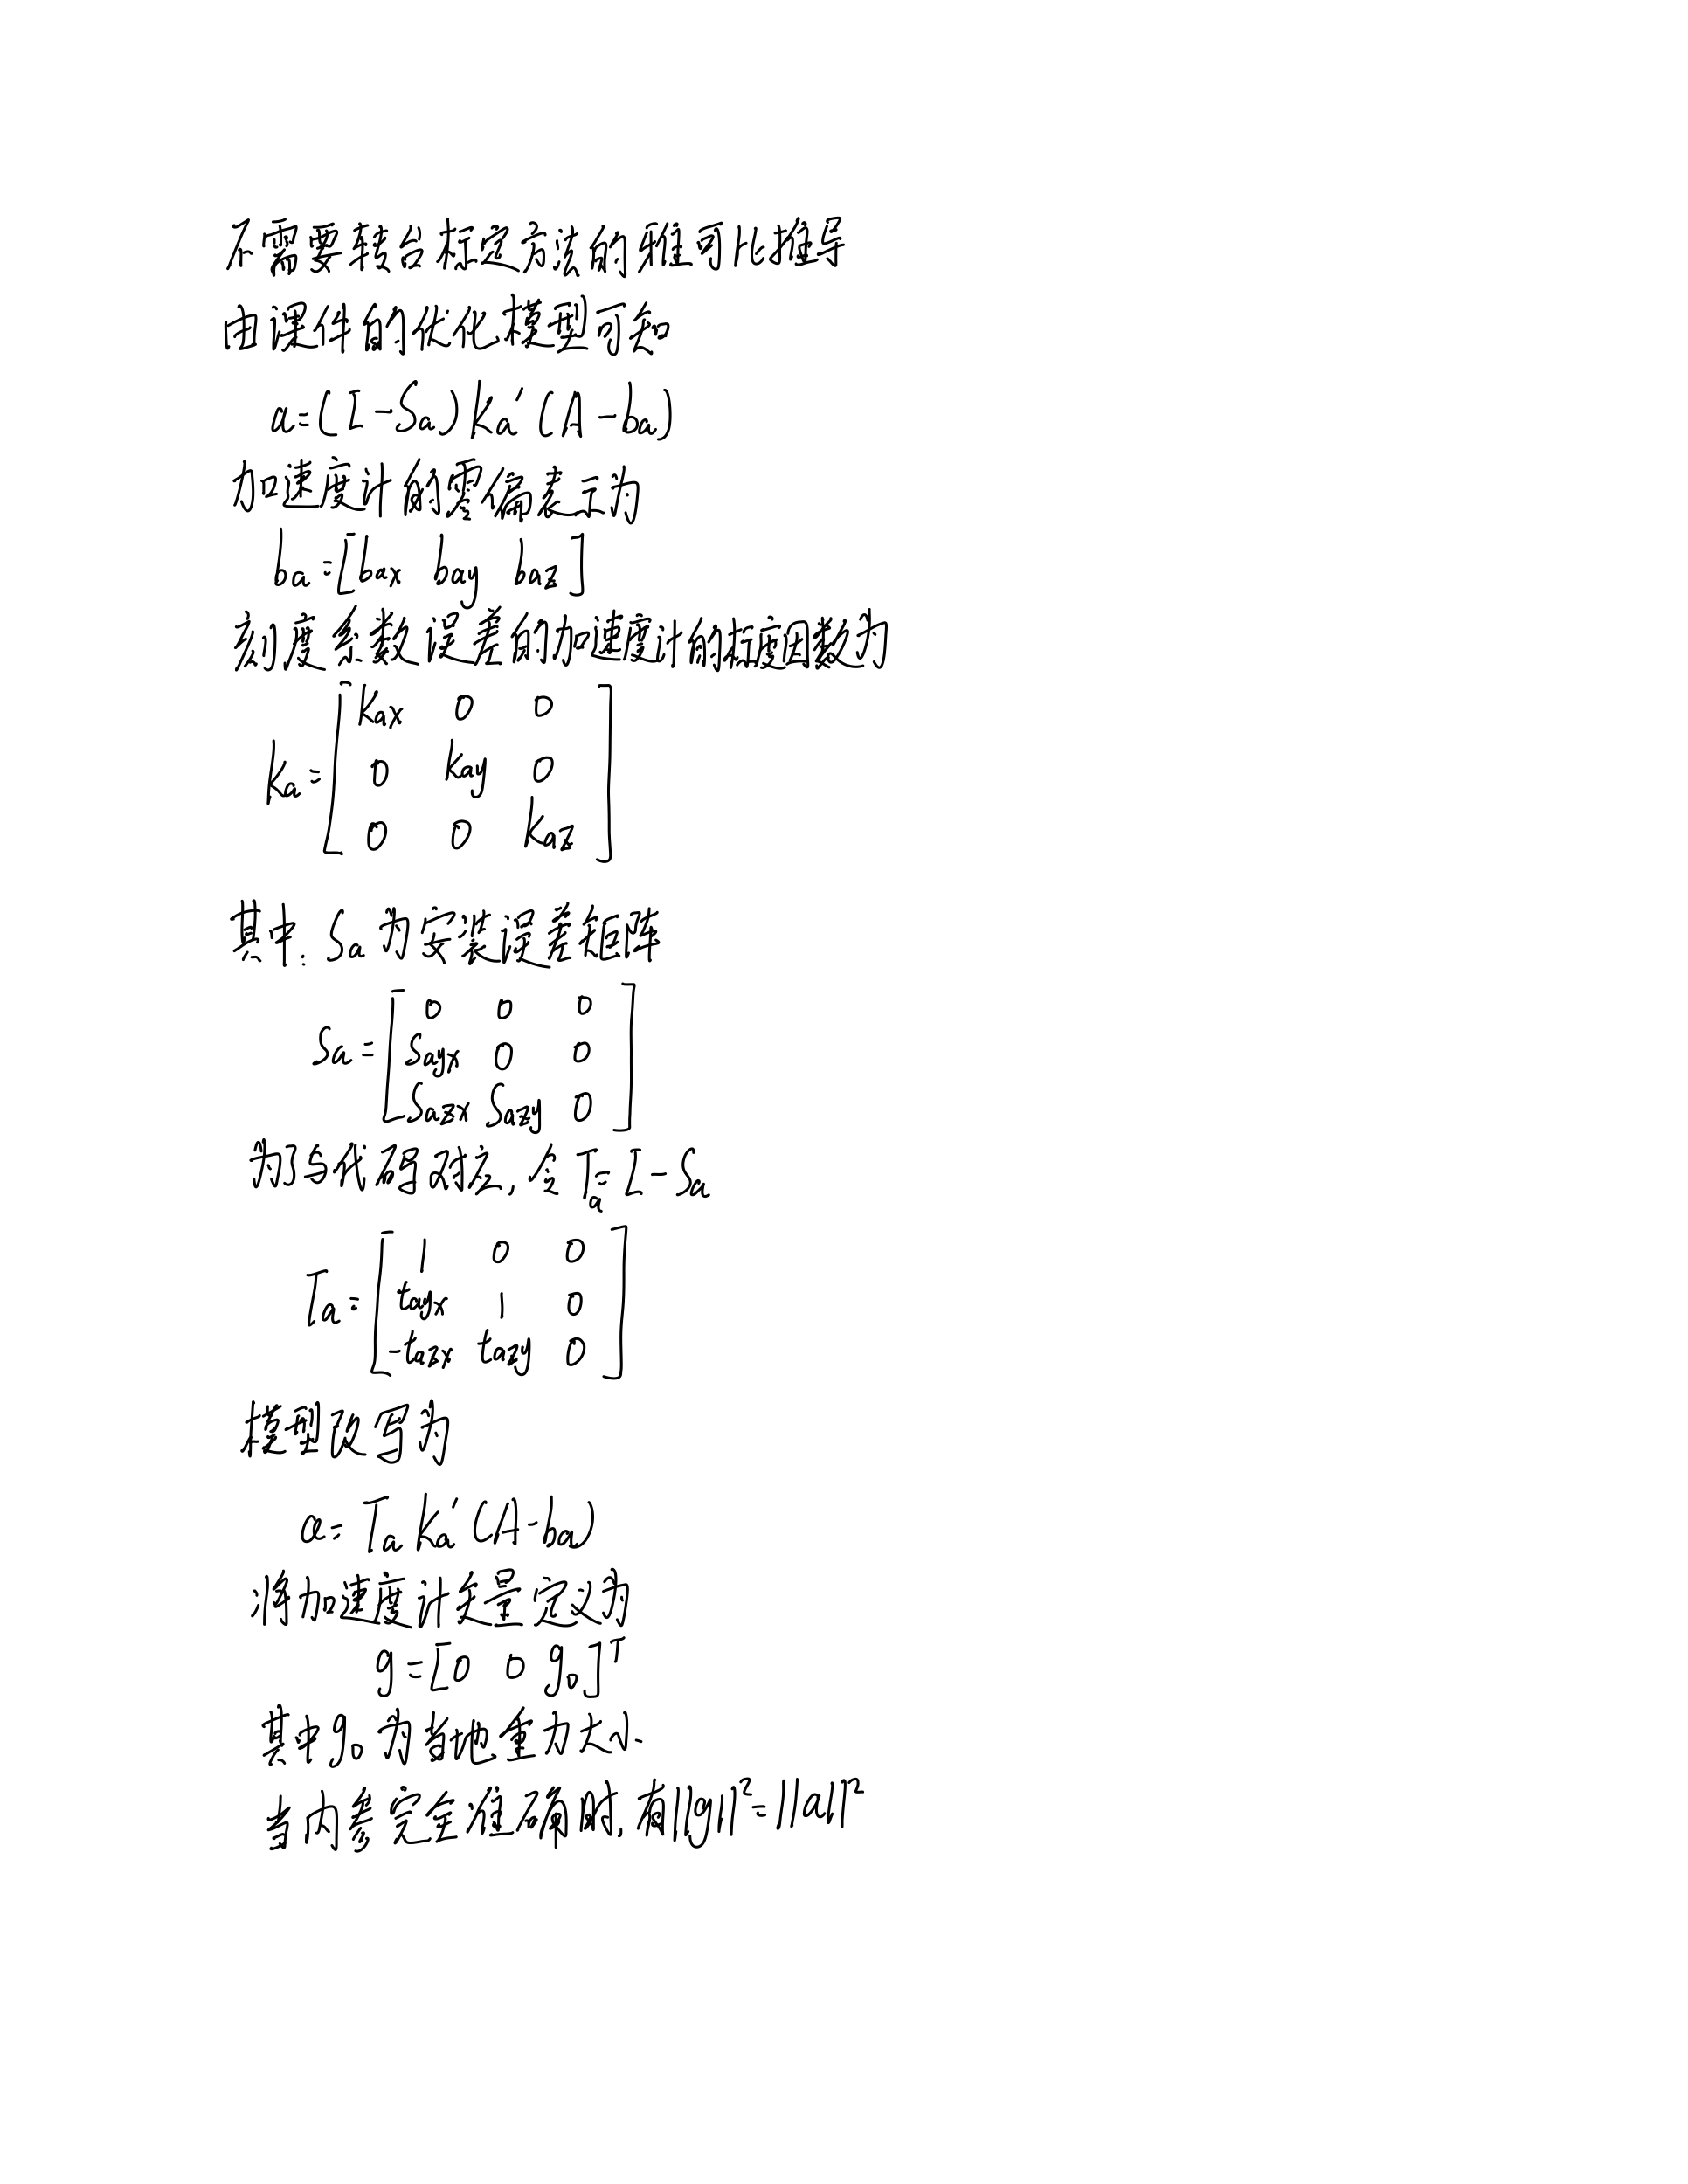 不需要转台标定方法的雅可比推导
由课件的优化模型可知
a=(I-Sa)Ka'(A-ba)
加速度计的零偏表示为
ba=[bax bay baz]
刻度系数误差的加速度计的标度因数为
Ka=[Kax 0 0
0 Kay 0
0 0 Kaz]
其中: Sa为安装误差矩阵
Sa=[0 0 0
Sayx 0 0
Sazx Sazy 0]
为了与代码对应, 令Ta=I-Sa
Ta=[1 0 0
tayx 1 0
-tazx tazy 0]
模型改写为
a=TaKa'(A-ba)
将加速度计矢量定义为
g=[0 0 g₀]ᵀ
其中g₀为当地重力大小.
当内参完全准确时, 有||g||²=||a||²